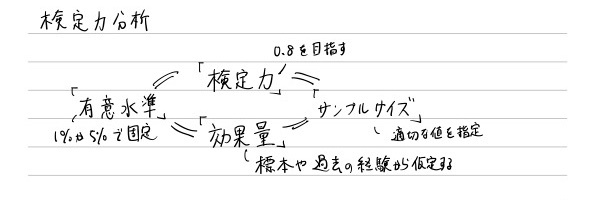 検定力分析
0.8を目指す
「検定力」
「有意水準」
「サンプルサイズ」
1%か5%で固定
「効果量」
適切な値を指定
標本や過去の経験から仮定する